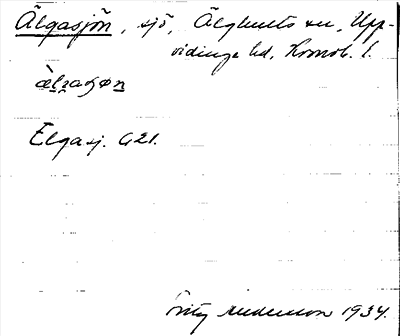 Älgasjön, sjö, Älghults sn, Upp-
vidinge hd, Kronob. l.
Elgasj. G21.
Anderson 1934.